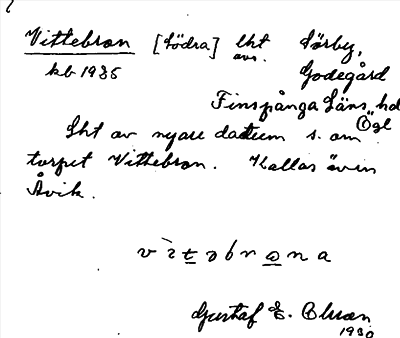 Vittebron [Södra] lht Sörby,
kb 1935 avs. Godegård
Finspånga Läns hd
Ögl
Lht av nyare datum s. om
torpet Vittebron. Kallas även
Åvik.
Gustaf E.
1930